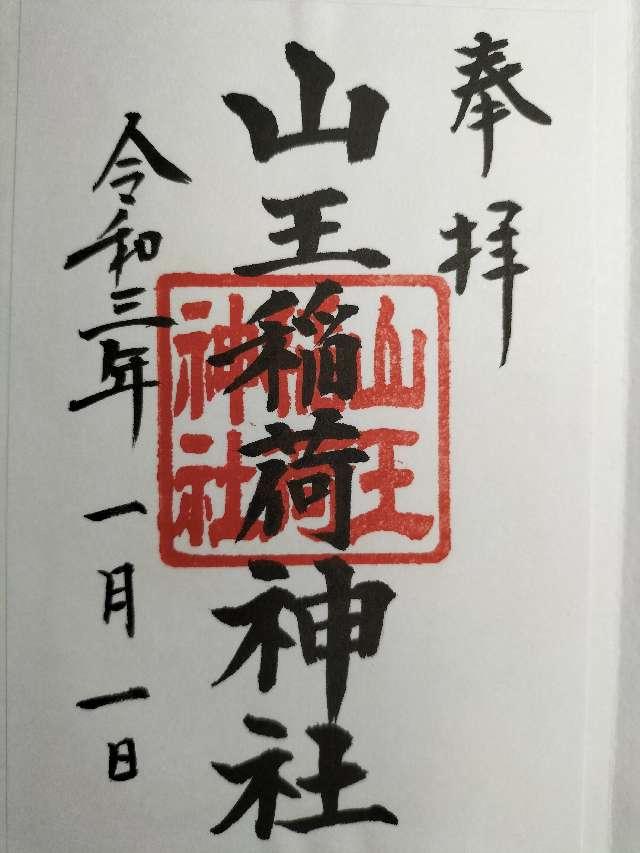 奉拝
山王稲荷神社
山王
稲荷
神社
令和三年一月一日